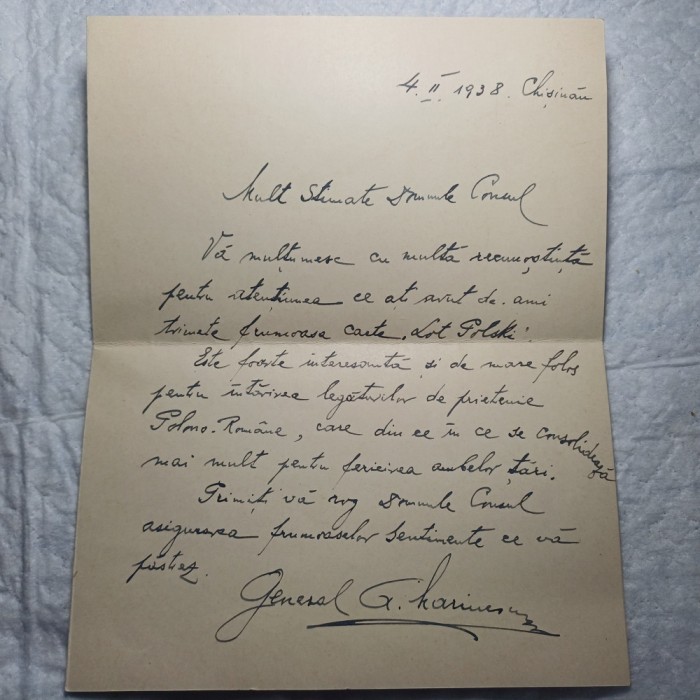 4.II.1938. Chișinău
Mult Stimate Domnule Consul
Vă mulțumesc cu multă recunoștiuță
pentru atențiunea ce ați avut de-a mi
trimite frumoasa carte „Lot Polski".
Este foarte interesantă și de mare folos
pentru întărirea legăturilor de prietenie
Polono-Române, care din ce în ce se consolidează
mai mult pentru fericirea ambelor țări.
Primiți vă rog Domnule Consul
asigurarea frumoaselor sentimente ce vă
păstrez.
General G. Marinescu